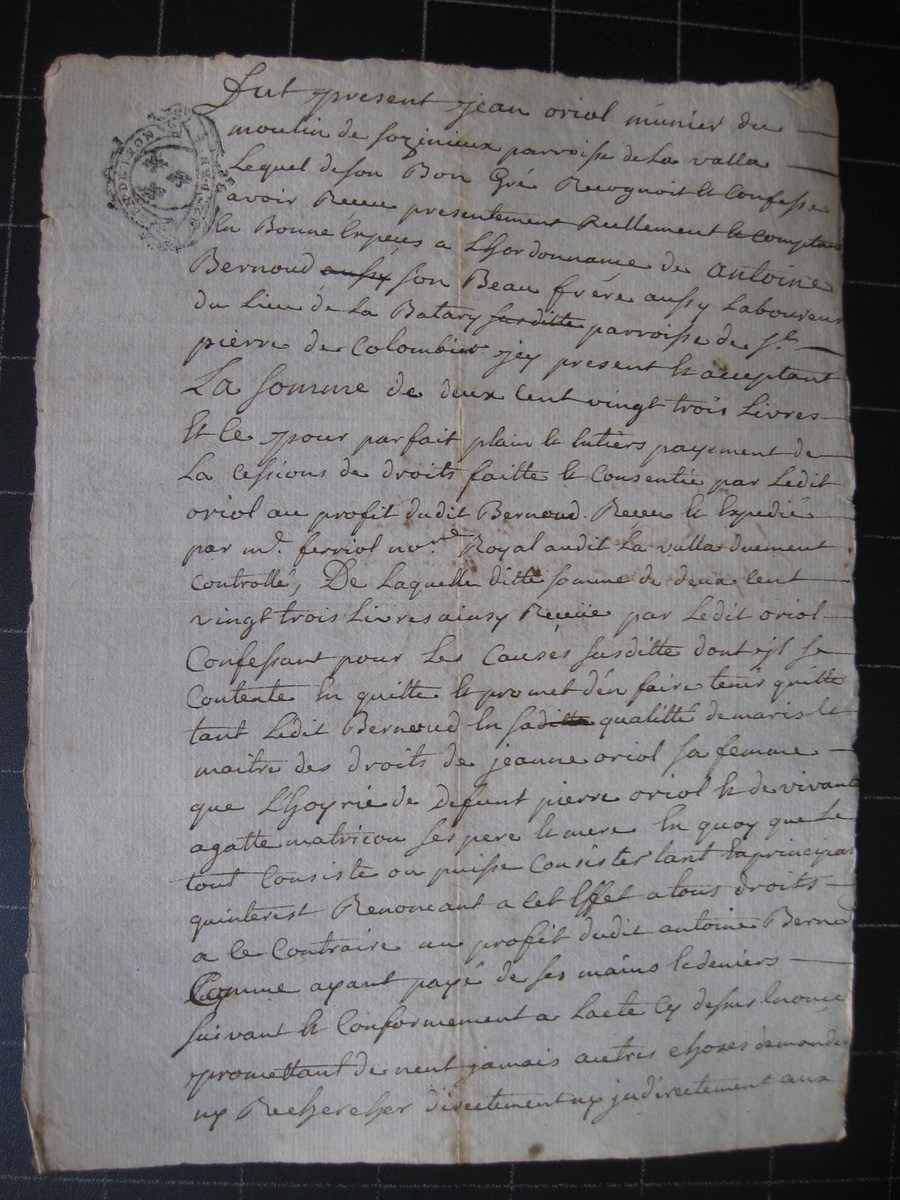 GEN DE LYON
Fut present jean oriol munier du
moulin de sozinieux parroisse de La valla
Lequel de son Bon Gré Recognoit et Confesse
avoir Receu presentement Reellement et Comptant
En Bonne Especes a Lhordonnance de antoine
Bernoud aussy son Beau frére aussy Laboureur
du Lieu de La Batary susditte parroisse de St
pierre de Colombier jcy present et acceptant
La somme de deux Cent vingt trois Livres
Et ce pour parfait plain et Entiers payement de
La Cessions de droits faitte et Consentie par Ledit
oriol au profit dudit Bernoud. Receu et Expedié
par me. ferriol nore Royal audit La valla duement
Controllé, De Laquelle ditte somme de deux Cent
vingt trois Livres ainsy Receüe par Ledit oriol
Confessant pour Les Causes susditte dont jl se
Contente En quitte et promet dén faire tenir quitte
tant Ledit Bernoud En saditte qualitté de maris et
maitre des droits de jeanne oriol sa femme
que Lhoyrie de Defunt pierre oriol et de vivante
agatte matricou ses pere et mere En quoy que Le
tout Consiste ou puisse Consister tant En principal
quinterest Renoncant a Cet Effet a tous droits
a ce Contraire au profit dudit antoine Bernod
Comme ayant payé de ses mains et deniers
suivant et Conformement a Lacte Cy dessus Enoncé
promettant de nent jamais autres choses demander
ny Rechercher directement ny jndirectement aux